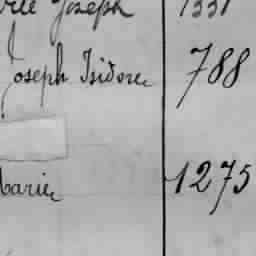 Joseph 1331
Joseph Isidore 788
Marie 1275